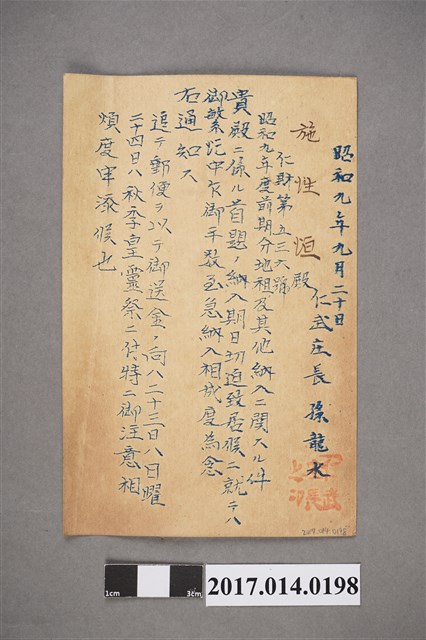 昭和九年九月二十日
仁武庄長 孫龍水
施性恒殿
仁財第五三六號
昭和九年度前期分地租及其他納入ニ関スル件
貴殿ニ係ル首題ノ納入期日切迫致居候ニ就テハ
御繁忙中乍御手数至急納入相成度為念
右通知ス
追テ郵便ヲ以テ御送金ノ向ハ二十三日ハ日曜
二十四日ハ秋季皇靈祭ニ付特ニ御注意相
煩度申添候也
2017.014.0198
1cm
3cm
2017.014.0198